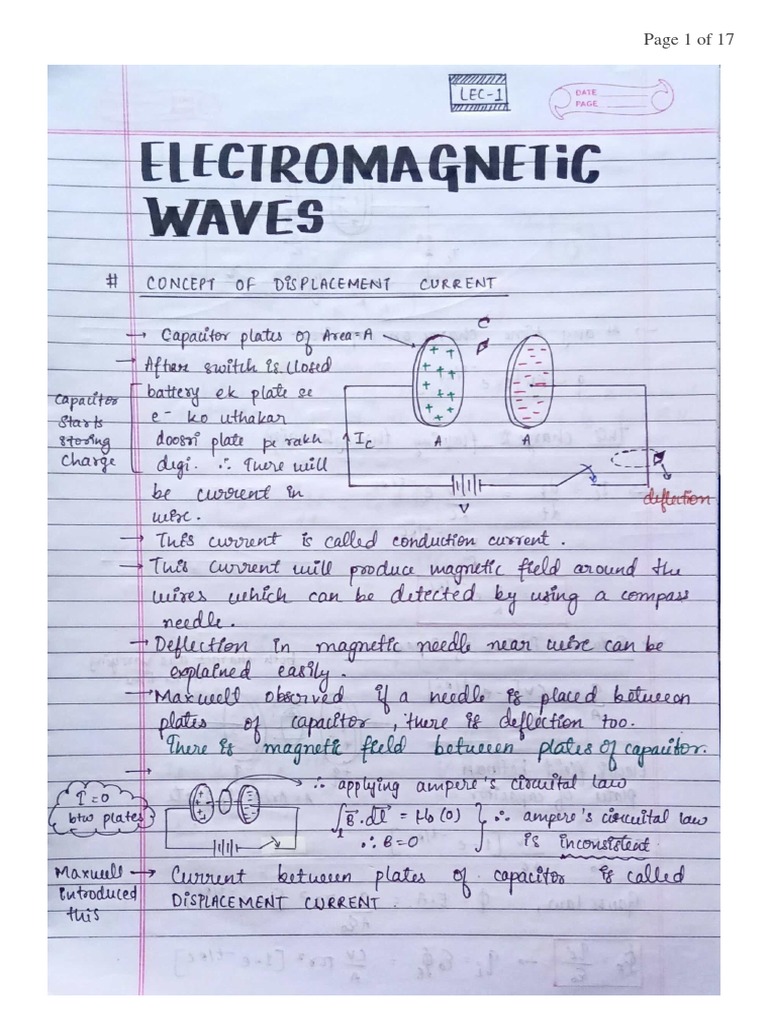 Page 1 of 17
LEC-1
DATE
PAGE
ELECTROMAGNETiC
WAVES
# CONCEPT OF DISPLACEMENT CURRENT
→ Capacitor plates of Area=A
→ After switch is closed
battery ek plate se
e⁻ ko uthakar
doosri plate pe rakh
degi. ∴ There will
be current in
wire.
Capacitor
starts
storing
charge
C
+ + + + + + + + +
A
A
I_C
V
deflection
→ This current is called conduction current.
→ This current will produce magnetic field around the
wires which can be detected by using a compass
needle.
→ Deflection in magnetic needle near wire can be
explained easily.
→ Maxwell observed if a needle is placed between
plates of capacitor, there is deflection too.
There is magnetic field between plates of capacitor.
→
I=0
btw plates
∴ applying ampere's circuital law
∫_l B⃗.dl⃗ = μ₀(0) } ∴ ampere's circuital law
∴ B=0 is inconsistent.
Maxwell
introduced
this
→ Current between plates of capacitor is called
DISPLACEMENT CURRENT.